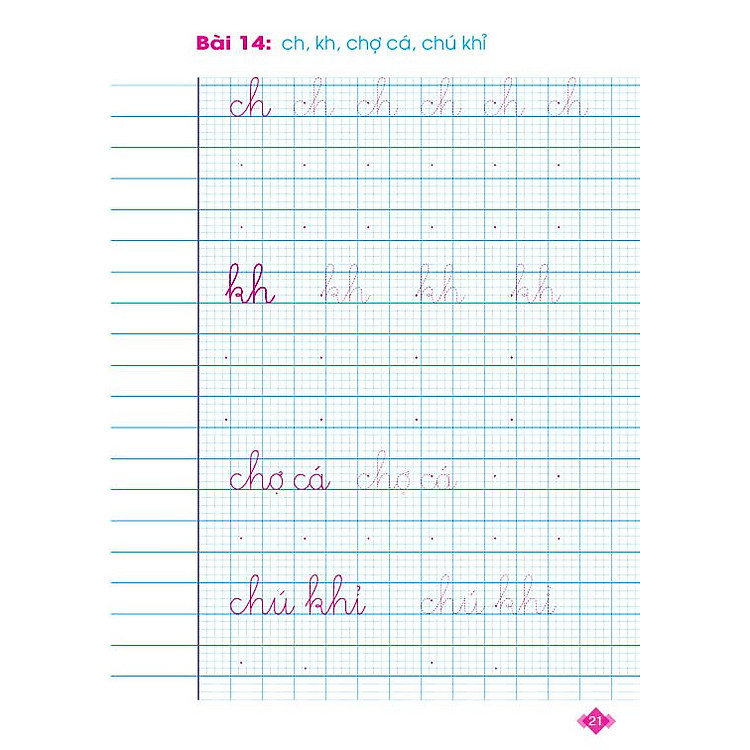 Bài 14: ch, kh, chợ cá, chú khỉ
ch ch ch ch ch ch
kh kh kh kh
chợ cá chợ cá
chú khỉ chú khỉ
21